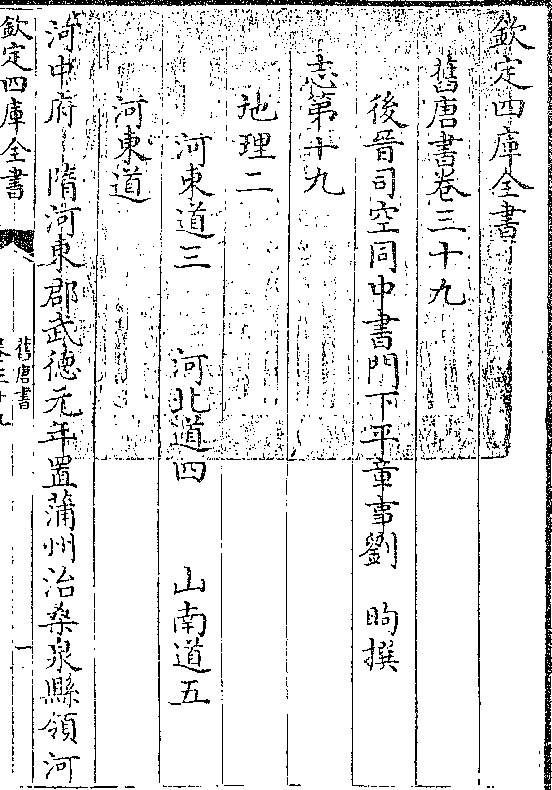 欽定四庫全書
舊唐書卷三十九
後晉司空同中書門下平章事劉 昫撰
志第十九
地理二
河東道三 河北道四 山南道五
河東道
河中府 隋河東郡武德元年置蒲州治桑泉縣領河
欽定四庫全書
舊唐書
卷三十九
一